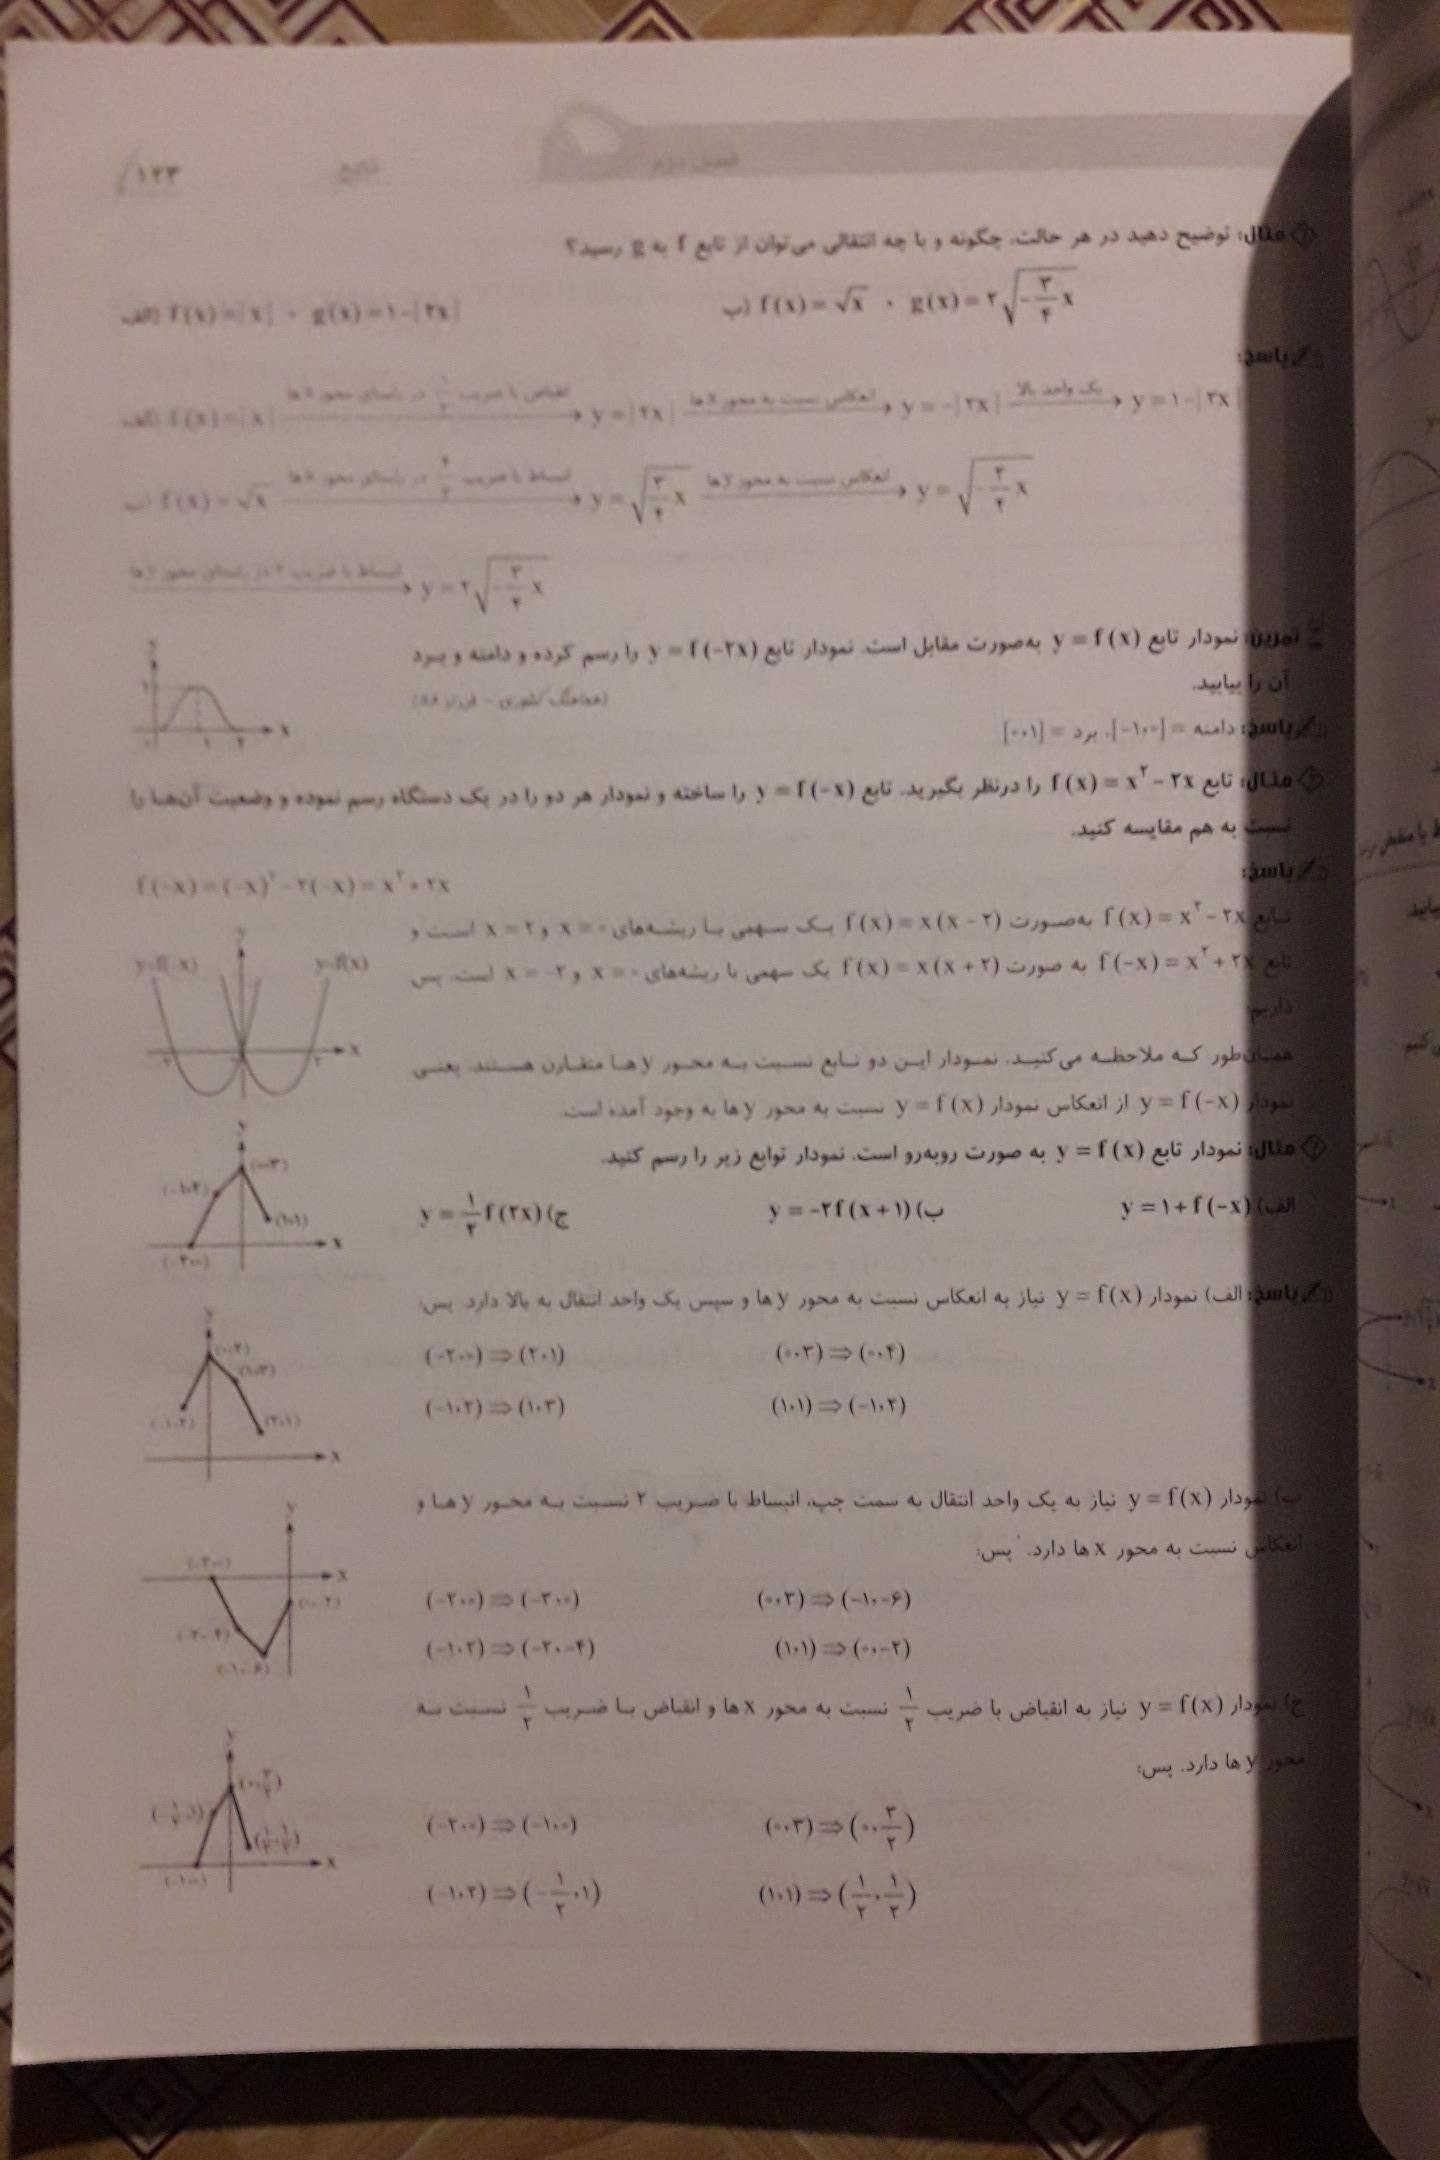 فصل دوم تابع ۱۲۳
مثال: توضیح دهید در هر حالت، چگونه و با چه انتقالی می‌توان از تابع f به g رسید؟
الف) f(x)=|x| , g(x)=۱-|۳x| ب) f(x)=√x , g(x)=۲√(-۳/۴ x)
پاسخ:
الف) f(x)=|x| انقباض با ضریب در راستای محور xها → y=|۳x| انعکاس نسبت به محور xها → y=-|۳x| یک واحد بالا → y=۱-|۳x|
ب) f(x)=√x انبساط با ضریب در راستای محور xها → y=√(۳/۴ x) انعکاس نسبت به محور yها → y=√(-۳/۴ x)
انبساط با ضریب ۲ در راستای محور yها → y=۲√(-۳/۴ x)
تمرین: نمودار تابع y=f(x) به‌صورت مقابل است. نمودار تابع y=f(-۲x) را رسم کرده و دامنه و برد
آن را بیابید.
پاسخ: دامنه = [-۱,۰]، برد = [۰,۱]
مثال: تابع f(x)=x²-۲x را درنظر بگیرید. تابع y=f(-x) را ساخته و نمودار هر دو را در یک دستگاه رسم نموده و وضعیت آن‌ها را
نسبت به هم مقایسه کنید.
پاسخ:
f(-x)=(-x)²-۲(-x)=x²+۲x
تابع f(x)=x²-۲x به‌صورت f(x)=x(x-۲) یک سهمی با ریشه‌های x=۰ و x=۲ است و
تابع f(-x)=x²+۲x به صورت f(x)=x(x+۲) یک سهمی با ریشه‌های x=۰ و x=-۲ است. پس
داریم:
y=f(-x) y=f(x)
همان‌طور که ملاحظه می‌کنید، نمودار این دو تابع نسبت به محور yها متقارن هستند. یعنی
نمودار y=f(-x) از انعکاس نمودار y=f(x) نسبت به محور yها به وجود آمده است.
مثال: نمودار تابع y=f(x) به صورت روبه‌رو است. نمودار توابع زیر را رسم کنید.
الف) y=۱+f(-x) ب) y=-۲f(x+۱) ج) y=۱/۲ f(۲x)
(۰,۳) (-۱,۲) (۱,۱) (-۲,۰)
پاسخ: الف) نمودار y=f(x) نیاز به انعکاس نسبت به محور yها و سپس یک واحد انتقال به بالا دارد. پس:
(-۲,۰)⇒(۲,۱) (۰,۳)⇒(۰,۴)
(-۱,۲)⇒(۱,۳) (۱,۱)⇒(-۱,۲)
(۰,۴) (۱,۳) (-۱,۲) (۲,۱)
ب) نمودار y=f(x) نیاز به یک واحد انتقال به سمت چپ، انبساط با ضریب ۲ نسبت به محور yها و
انعکاس نسبت به محور xها دارد. پس:
(-۲,۰)⇒(-۳,۰) (۰,۳)⇒(-۱,-۶)
(-۱,۲)⇒(-۲,-۴) (۱,۱)⇒(۰,-۲)
(-۳,۰) (۰,-۲) (-۲,-۴) (-۱,-۶)
ج) نمودار y=f(x) نیاز به انقباض با ضریب ۱/۲ نسبت به محور xها و انقباض با ضریب ۱/۲ نسبت به
محور yها دارد. پس:
(-۲,۰)⇒(-۱,۰) (۰,۳)⇒(۰,۳/۲)
(-۱,۲)⇒(-۱/۲,۱) (۱,۱)⇒(۱/۲,۱/۲)
(۰,۳/۲) (-۱/۲,۱) (۱/۲,۱/۲) (-۱,۰)